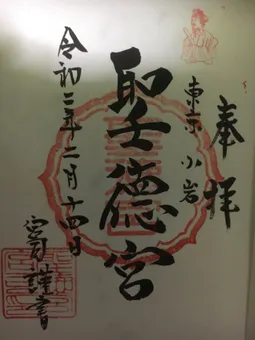 奉拝
東京 小岩
聖徳宮
令和二年二月十四日
宮司 謹書